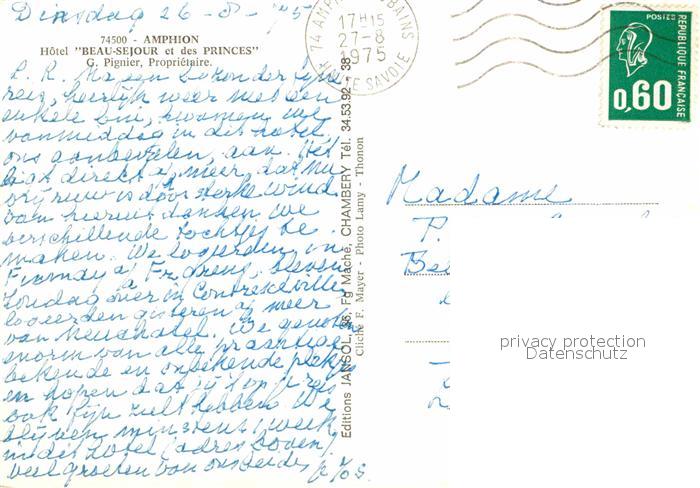 Dinsdag 26-8-'75
74500 - AMPHION
Hôtel "BEAU-SEJOUR et des PRINCES"
G. Pignier, Propriétaire.
L. R. Na een bijzonder fijne
reis, heerlijk weer met een
enkele bui, kwamen we
vanmiddag in dit hotel,
ons aanbevolen, aan. Het
ligt direct a/ meer, dat nu
vrij ruw is door sterke wind.
Van hieruit denken we
verschillende tochtjes te
maken. We logeerden in
Fumay a/ Franse, bleven
Zondag over in Contrexéville
logeerden gisteren a/ meer
van Neuchatel. We genieten
enorm van alle prachtige
bekende en onbekende plekjes
en hopen dat jij
ook fijn zult hebben. We
blijven minstens 1 week
in dit hotel (adres boven)
veel groeten van ons beide
Editions JANSOL, 36, Fg Maché, CHAMBERY Tél. 34.53.92 - 38
Cliché F. Mayer - Photo Lamy - Thonon
74 AMPHION LES BAINS
17H15
27-8
1975
HAUTE SAVOIE
POSTES
REPUBLIQUE FRANÇAISE
0,60
Madame
P.
privacy protection
Datenschutz